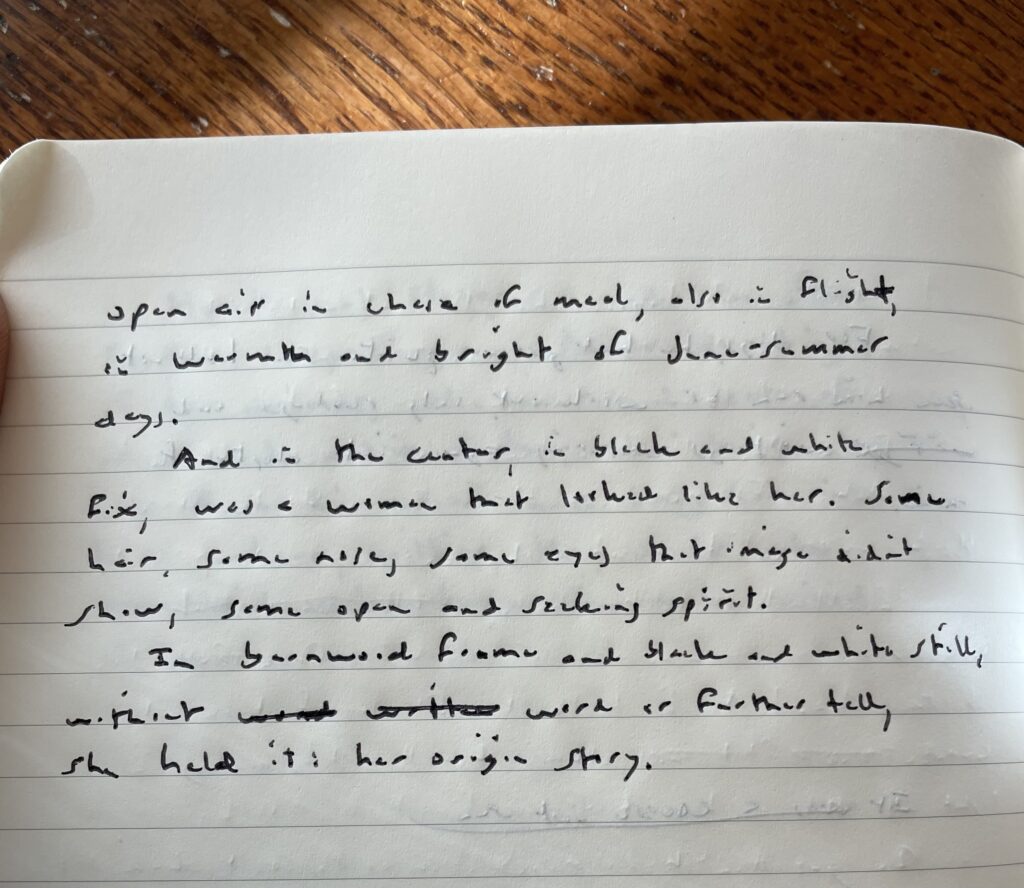 open air in chase of meal, also in flight,
in warmth and bright of June-summer
days.
And in the center, in black and white
fix, was a woman that looked like her. Same
hair, same nose, same eyes that image didn't
show, same open and seeking spirit.
In barnwood frame and black and white still,
without word written word or further tell,
she held it: her origin story.